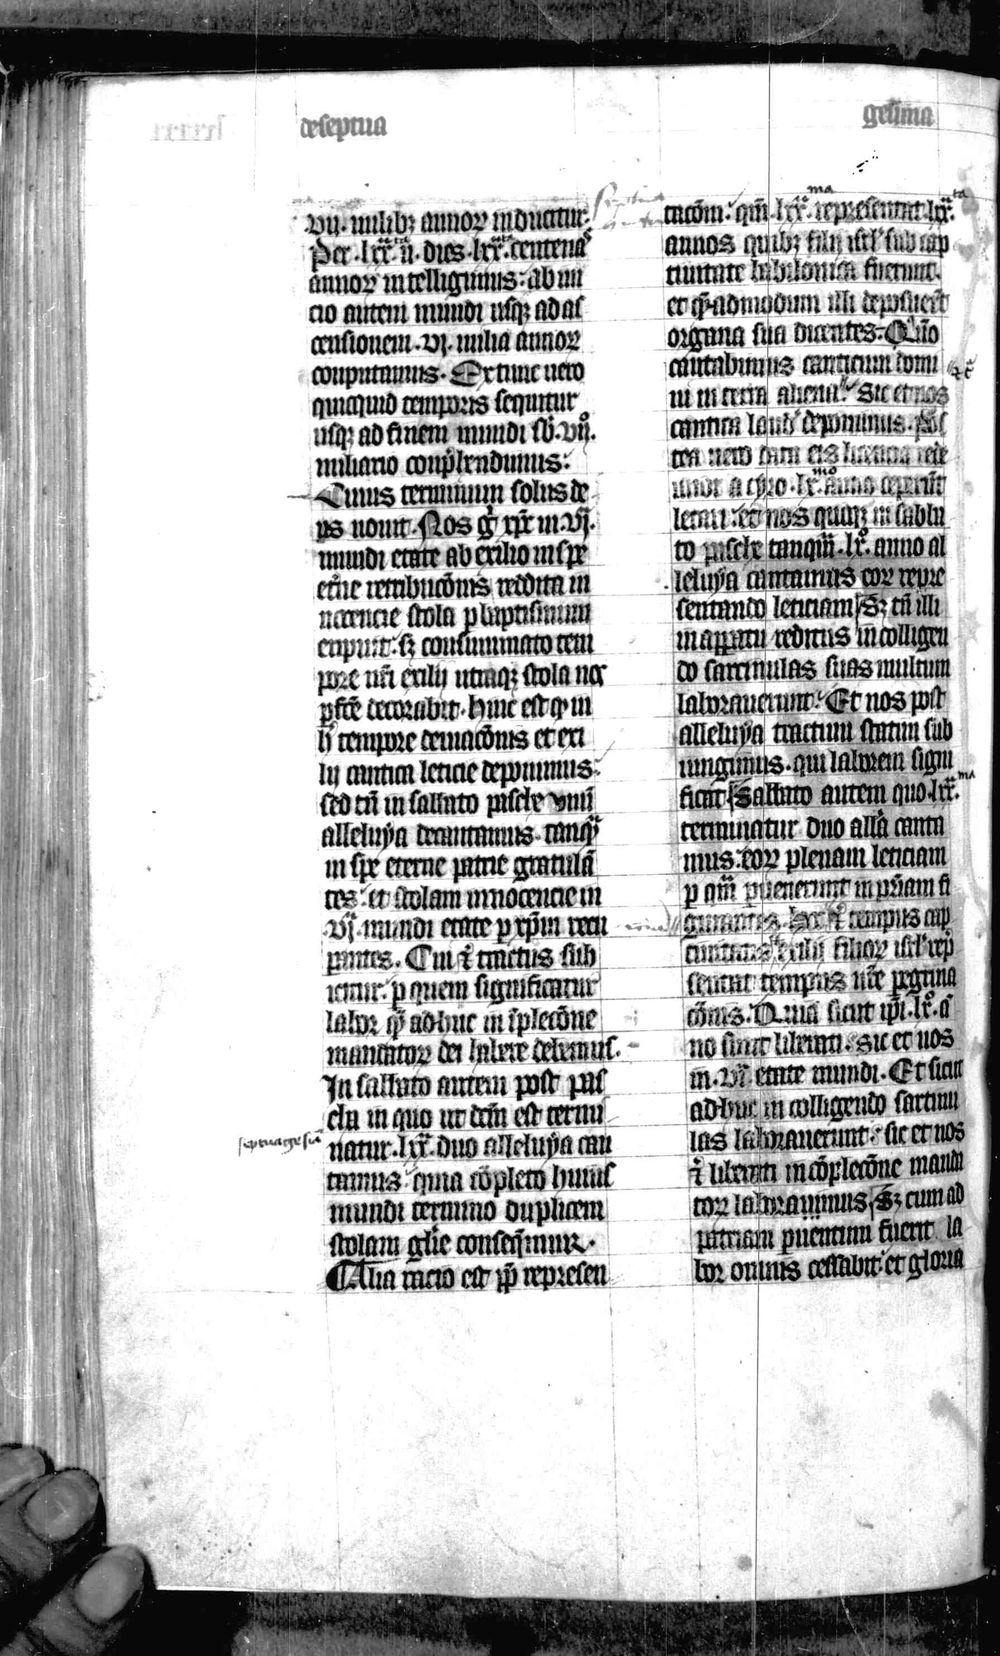 de septua
gesima
vij. milibꝫ annoꝝ inducitur.
Per .lxx. ū. dies .lxx. centenaꝰ
annoꝝ intelligimus: ab ini
cio autem mundi usqꝫ ad as
censionem .vj. milia annoꝝ
conputamus. Extunc uero
quicquid temporis sequitur
usqꝫ ad finem mundi sb̄ .vijͦ.
miliario conp̄hendimus:
Cuius terminum solus de
us nouit. Nos gͦ xpc̄ in .vjͣ.
mundi etate ab exilio in spe
et̄ne retribucōnis reddita in
nocencie stola ꝑ baptismum
eripuit. sꝫ consummato tem
pore nr̄i exilij utraqꝫ stola nos
ꝑfc̄e decorabit. Hinc est ꝙ in
hͦ tempore deuiacōnis et exi
lij cantica leticie deponimus:
sed tn̄ in sabbato pasche vnū
alleluya decantamus. tanqͣ
in spe eterne patrie gratulā
tes: et stolam innocencie in
vjͣ. mundi etate ꝑ xpm̄ recu
ꝑantes. Cui ⁊ tractus sub
icitur. ꝑ quem significatur
labor qͥ adhuc in īplecōne
mandatoꝝ dei habere debemus.
In sabbato autem post pas
cha in quo ut dcm̄ est termi
septuagesiā
natur .lxx. duo alleluya can
tamus: quia cōpleto huius
mundi termino duplicem
stolam gl̄ie conseq̄mur.
Alia racio est ꝓp̄ represen
tacōm: qm̄ .lxx.ᵐᵃ representat .lxx.ᵗᵃ
annos quibꝫ filij isrl̄ sub cap
tiuitate babilonica fuerunt.
et qͤadmodum illi deposuer̄t
organa sua dicentes: Qūo
cantabimus canticum domi
ni in terra aliena. Sic et nos
cantica laud̄ deponimus. Pꝰ
iunt a cyro .lx.ᵐᵒ anno ceperūt
letari: et nos quoqꝫ in sabba
to pasche tanqm̄ .lxͦ. anno al
leluya cantamus eoꝝ repre
sentando leticiam Sꝫ tn̄ illi
in apparatu reditus in colligen
do sarcinulas suas multum
laborauerunt: Et nos post
alleluya tractum statim sub
iungimus. qui laborem signi
ficat Sabbato autem quo .lxx.ᵐᵃ
terminatur duo allā canta
mus: eoꝝ plenam leticiam
ꝑ qm̄ ꝑuenerunt in pr̄iam fi
gurantes. Hoc ⁊ tempus cap
tiuitatis et exilij filioꝝ isrl̄ rep̄
sentat tempus nr̄e ꝑegrina
cōnis. Quia sicut ip̄i .lxͦ. a
no sunt liberati. sic et nos
in .vjͣ. etate mundi. Et sicut
adhuc in colligendo sarcinu
las laborauerunt: sic et nos
⁊ liberati in cōplecōne manda
toꝝ laboramus Sꝫ cum ad
patriam ꝑuentum fuerit la
bor omnis cessabit: et gloria